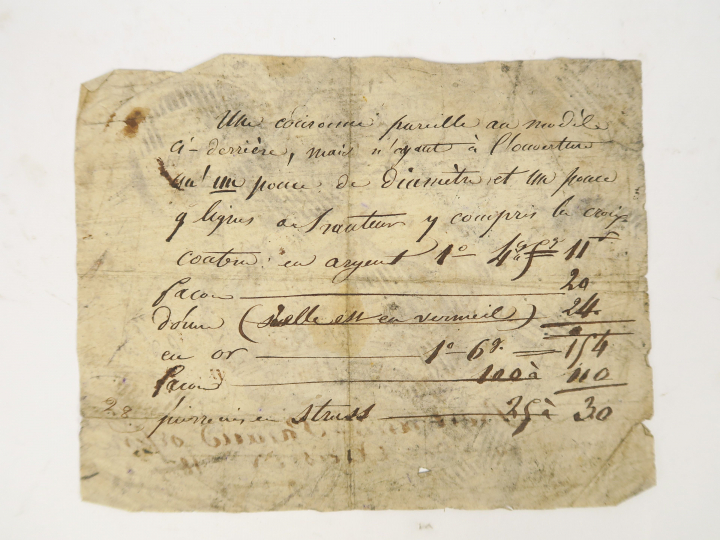 Une couronne pareille au modèle
ci-derrière, mais n'ayant à l'ouverture
qu'un pouce de diamètre et un pouce
9 lignes de hauteur y compris la croix
coutera: en argent 1º 4g = 11
façon 20
dorure (si elle est en vermeil) 24
en or 1º 6g. = 154
façon 100 à 110
pierreries en strass 25 à 30